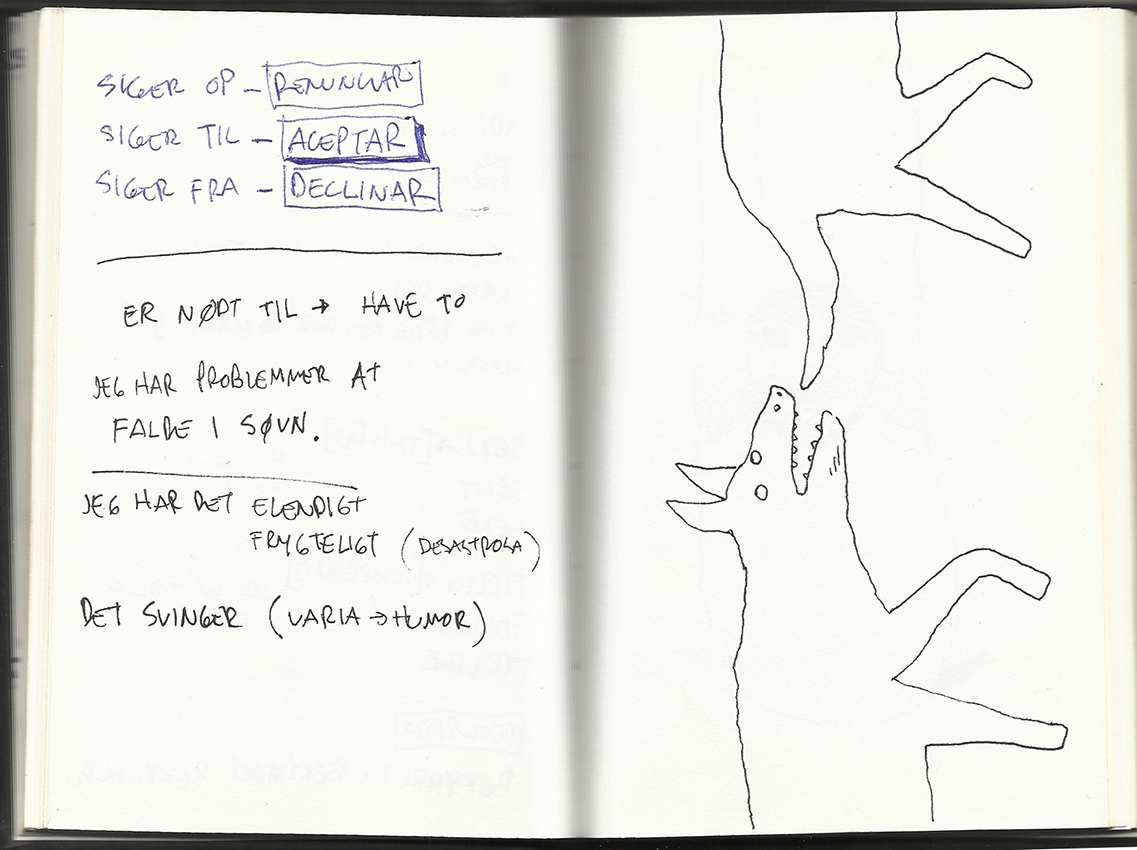 SIGER OP - RENUNCIAR
SIGER TIL - ACEPTAR
SIGER FRA - DECLINAR
ER NØDT TIL → HAVE TO
JEG HAR PROBLEMMER AT
FALDE I SØVN.
JEG HAR DET ELENDIGT
FRYGTELIGT (DESASTROSA)
DET SVINGER (VARIA → HUMOR)